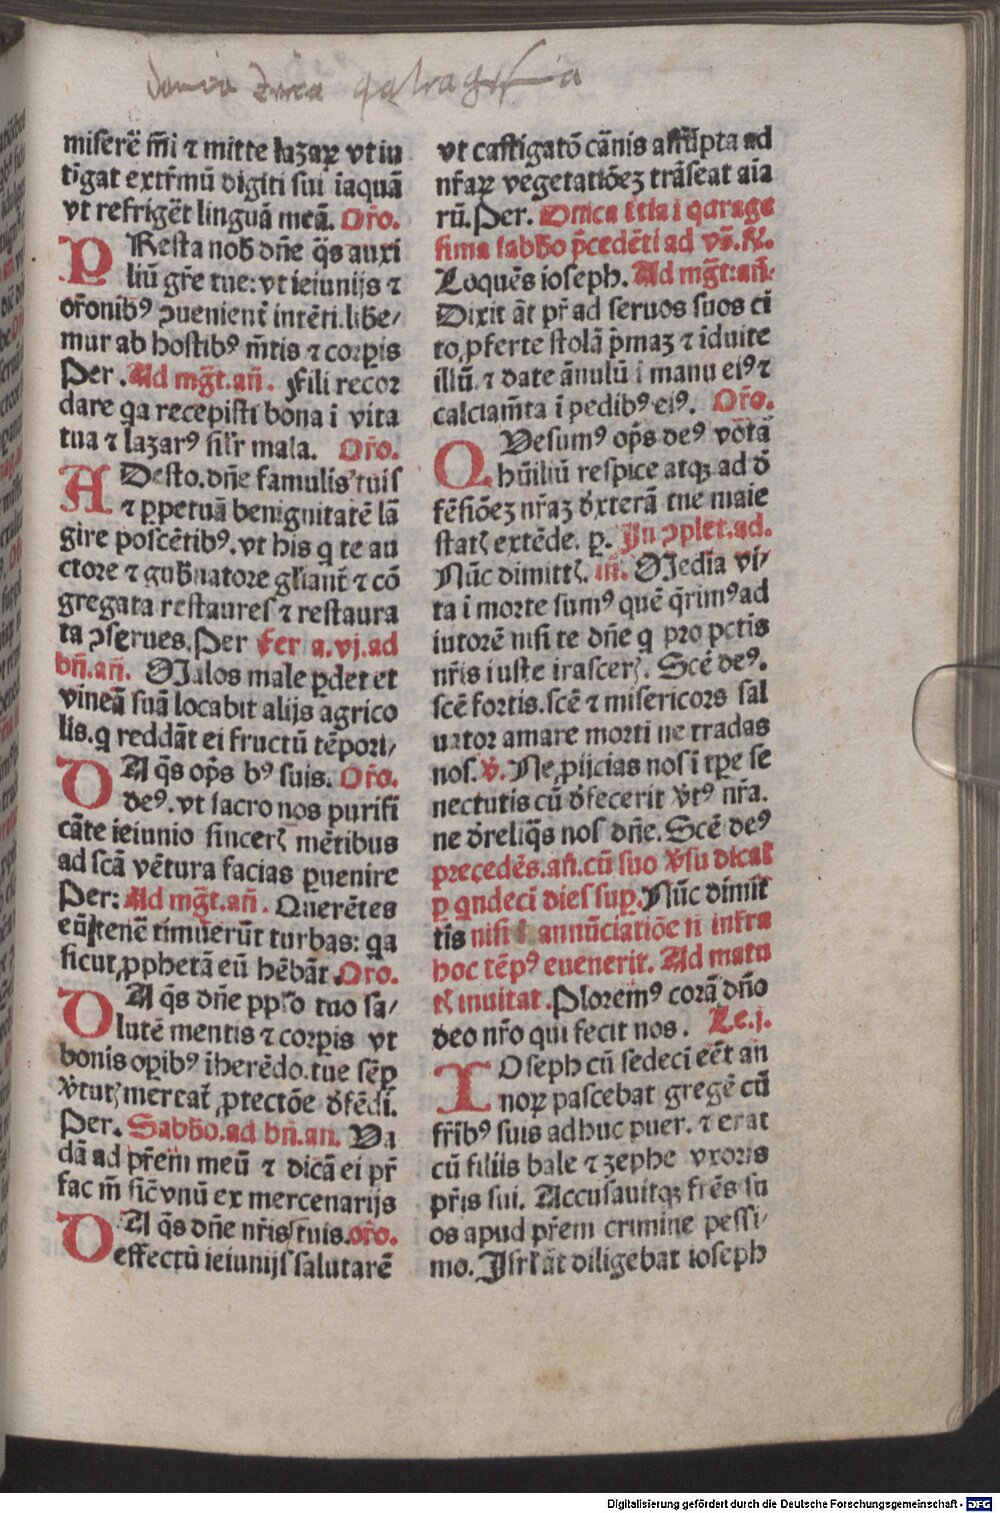 miserē m̄i ⁊ mitte lazaꝝ vt in
tīgat extr̄mū digiti sui īaquā
vt refrigēt linguā meā. Or̄o.
PResta nob̄ dn̄e q̄s auxi
liū gr̄e tue: vt ieiunijs ⁊
or̄onibꝰ ꝯuenient̄ intēti. libe/
mur ab hostibꝰ m̄tis ⁊ corpis
Per. Ad mḡt. an̄. Fili recor
dare qa recepisti bona i vita
tua ⁊ lazarꝰ silr̄ mala. Or̄o.
ADesto. dn̄e famulis tuis
⁊ ꝑpetuā benignitatē lā
gire poscētibꝰ. vt his q te au
ctore ⁊ gub̄natore gl̄iant̄ ⁊ cō
gregata restaures ⁊ restaura
ta ꝯserues. Per Fer a. vj. ad
bn̄. an̄. Malos male ꝑdet et
vineā suā locabit alijs agrico
lis. q reddāt ei fructū tēpori/
DA q̄s op̄s bꝰ suis. Or̄o.
deꝰ. vt sacro nos purifi
cāte ieiunio sincerꝭ mētibus
ad scā vētura facias ꝑuenire
Per: Ad mḡt. an̄. Querētes
eū tenē timuerūt turbas: qa
sicut ꝓphetā eū hēbāt. Oro.
DA q̄s dn̄e ppl̄o tuo sa/
lutē mentis ⁊ corpis vt
bonis oꝑibꝰ īherēdo. tue sēꝑ
v̄tutꝭ mercat̄ ꝓtectōe d̄fēdi.
Per. Sabb̄o. ad bn̄. an. Va
dā ad pr̄em meū ⁊ dicā ei pr̄
fac m̄ sic̄ vnū ex mercenarijs
DA q̄s dn̄e nr̄is tuis. or̄o.
effectū ieiunijs salutarē
vt castigatō cānis assūpta ad
nr̄aꝝ vegetatiōeꝫ trāseat aīa
rū. Per. Dn̄ica t̄tia i qdrage
sima sabb̄o p̄cedēti ad vs̄. ꝶ.
Loquēs ioseph. Ad mḡt: an̄.
Dixit āt pr̄ ad seruos suos ci
to ꝓferte stolā p̄maꝫ ⁊ īduite
illū. ⁊ date ānulū i manu eiꝰ ⁊
calciam̄ta ī pedibꝰ eiꝰ. Or̄o.
QVesumꝰ op̄s deꝰ vōta
hūiliū respice atqꝫ ad d̄
fēsiōeꝫ nr̄aꝫ d̄xterā tue maie
statꝭ extēde. ꝑ. In ꝯplet. ad.
Nūc dimittꝭ. an̄. Media vi/
ta i morte sumꝰ quē q̄rimꝰ ad
iutorē nisi te dn̄e q pro pctis
nr̄is iuste irascerꝭ. Scē deꝰ.
scē fortis. scē ⁊ misericors sal
uator amare morti ne tradas
nos. v̄. Ne ꝓijcias nos ī tꝑe se
nectutis cū d̄fecerit v̄tꝰ nr̄a.
ne d̄reliq̄s nos dn̄e. Scē deꝰ
precedēs. an̄. cū suo v̄su dicat̄
ꝑ qndeci dies suꝑ. Nūc dimit̄
tis nisi annūciatiōe n infra
hoc tēpꝰ euenerit. Ad matu
tꝭ inuitat. Ploremꝰ corā dn̄o
deo nr̄o qui fecit nos. Le. j.
IOseph cū sedeci eēt an
noꝝ pascebat gregē cū
fr̄ibꝰ suis adhuc puer. ⁊ erat
cū filiis bale ⁊ zephe vxoris
pr̄is sui. Accusauitqꝫ fr̄es su
os apud pr̄em crimine pessi/
mo. Isrl̄ āt diligebat ioseph
Digitalisierung gefördert durch die Deutsche Forschungsgemeinschaft - DFG